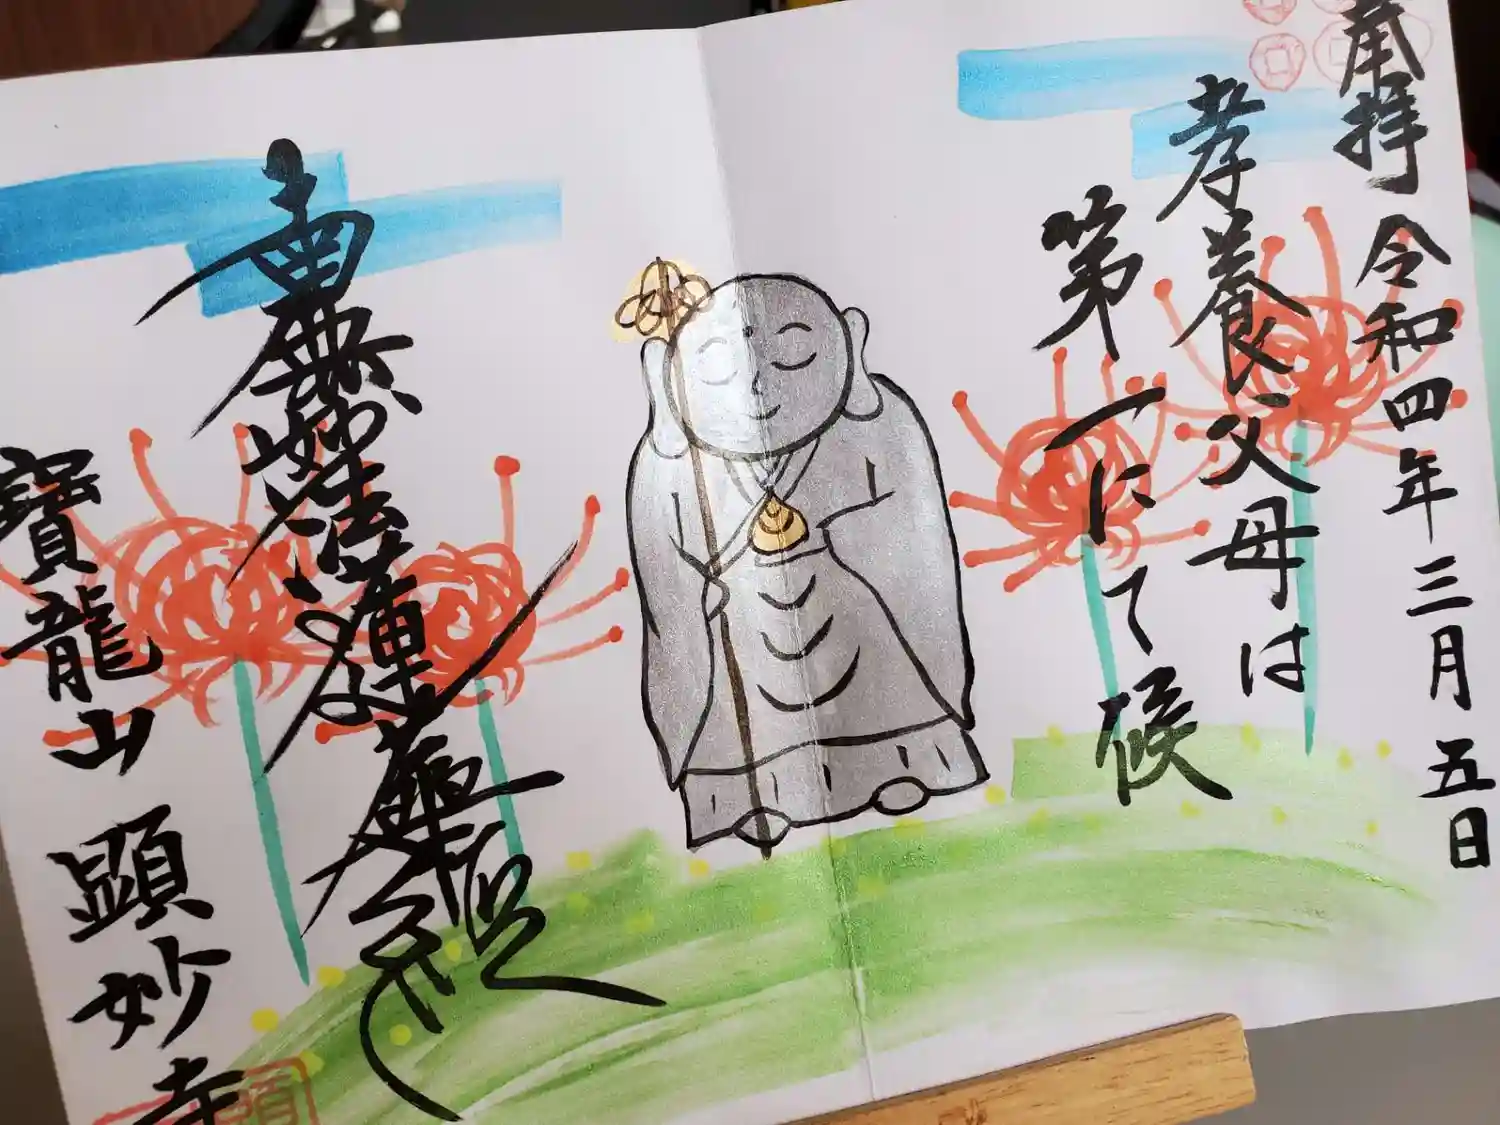 奉拝 令和四年三月五日
孝養父母は
第一にて候
南無妙法蓮華経
寶龍山 顕妙寺